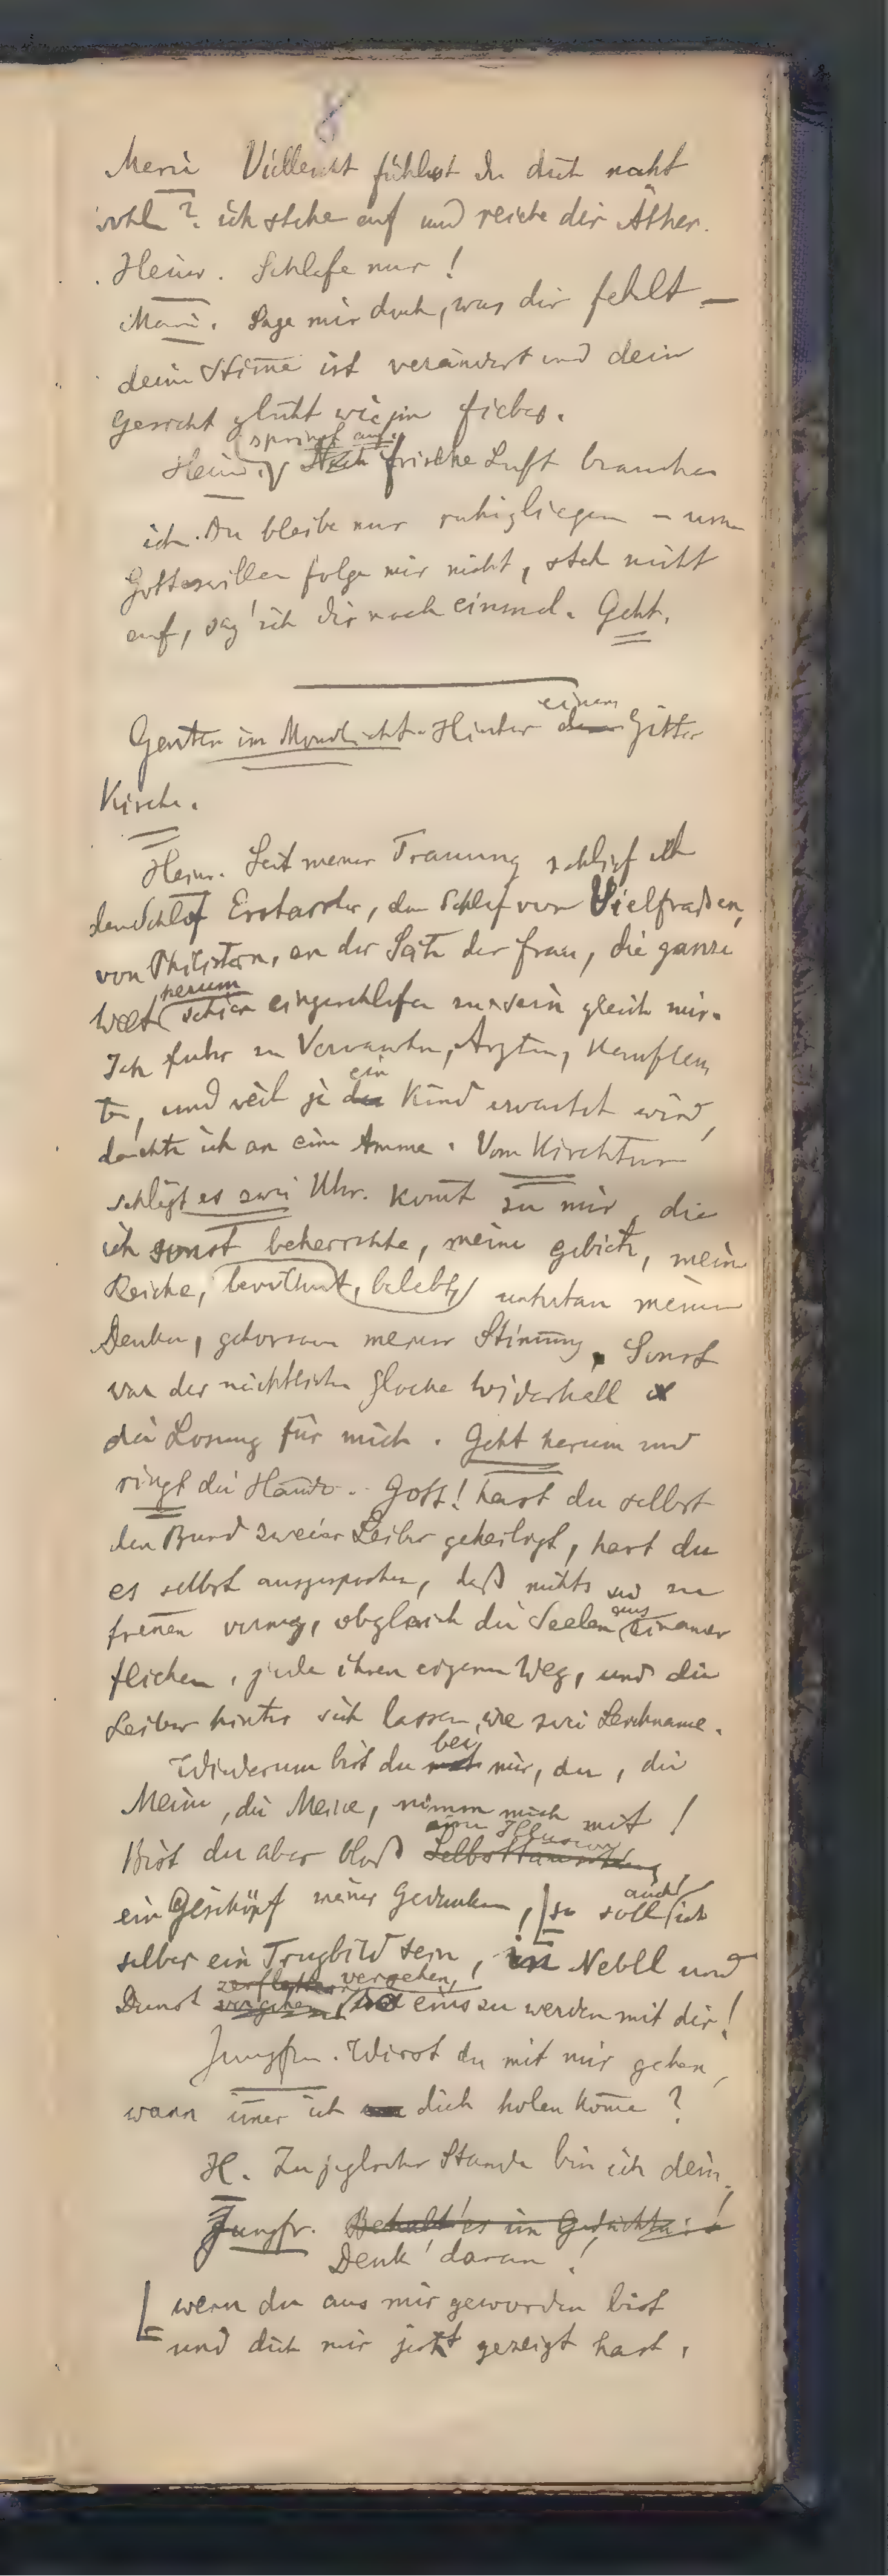 8
Marie Vielleicht fühlst du dich nicht
wohl? ich stehe auf und reiche dir Äther.
Heinr. Schlafe nur!
Marie. Sage mir doch, was dir fehlt —
deine Stim̄e ist verändert und dein
Gesicht glüht wie im Fieber.
springt auf.
Heinr. Ach frische Luft brauche
ich. Du bleibe nur ruhig liegen – um
Gotteswillen folge mir nicht, steh nicht
auf, sag' ich dir noch einmal. Geht.
einem
Garten im Mondlicht. Hinter dem Gitter
Kirche.
Heinr. Seit meiner Trauung schlief ich
den Schlaf Erstarrter, den Schlaf von Vielfraßen,
von Philistern, an der Seite der Frau, die ganze
herum
Welt schien eingeschlafen zu sein gleich mir.
Ich fuhr zu Verwandten, Ärzten, Kaufleu
ein
ten, und weil ja das Kind erwartet wird,
dachte ich an eine Amme. Vom Kirchturm
schlägt es zwei Uhr. Kom̄t zu mir, die
ich sonst beherrschte, meine Gebiete, meine
Reiche, bevölkert, belebt, untertan meinem
Denken, gehorsam meiner Stim̄ung. Sonst
war der nächtlichen Glocke Widerhall
die Losung für mich. Geht herum und
ringt die Hände. Gott! hast du selbst
den Bund zweier Leiber geheiligt, hast du
es selbst ausgesprochen, daß nichts sie zu
tren̄en vermag, obgleich die Seelen einander
fliehen, jede ihren eigenen Weg, und die
Leiber hinter sich lassen, wie zwei Leichname.
bei
Wiederum bist du mit mir, du, die
Meine, die Meine, nimm mich mit!
eine Illusion
Bist du aber bloß Selbsttäuschung
auch
ein Geschöpf meiner Gedanken, so soll ich
selber ein Trugbild sein, in Nebel und
zerflattern vergehen,
Dunst vergehen, eins zu werden mit dir!
Jungfr. Wirst du mit mir gehen,
wann im̄er ich dich holen kom̄e?
H. Zu jeglicher Stunde bin ich dein.
Jungfr. Behalt' es im Gedächtnis!
Denk' daran!
wenn du aus mir geworden bist
und dich mir jetzt gezeigt hast,